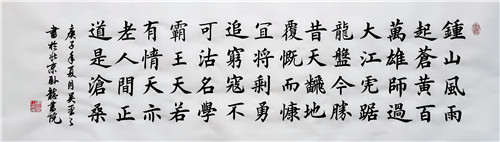 鍾山風雨
起蒼黃百
萬雄師過
大江虎踞
龍盤今勝
昔天翻地
覆慨而慷
宜將剩勇
追窮寇不
可沽名學
霸王天若
有情天亦
老人間正
道是滄桑
庚子年夏月吳
書於北京卧龍書院